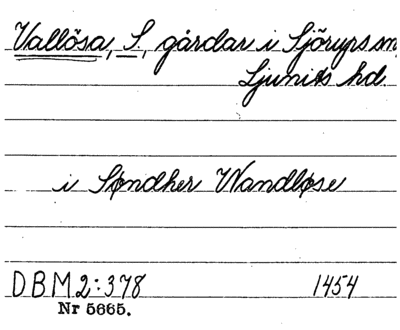 Vallösa, S., gårdar i Sjörups sn,
Ljunits hd.
i Søndher Wandløse
DBM 2:378 1454
Nr 5665.